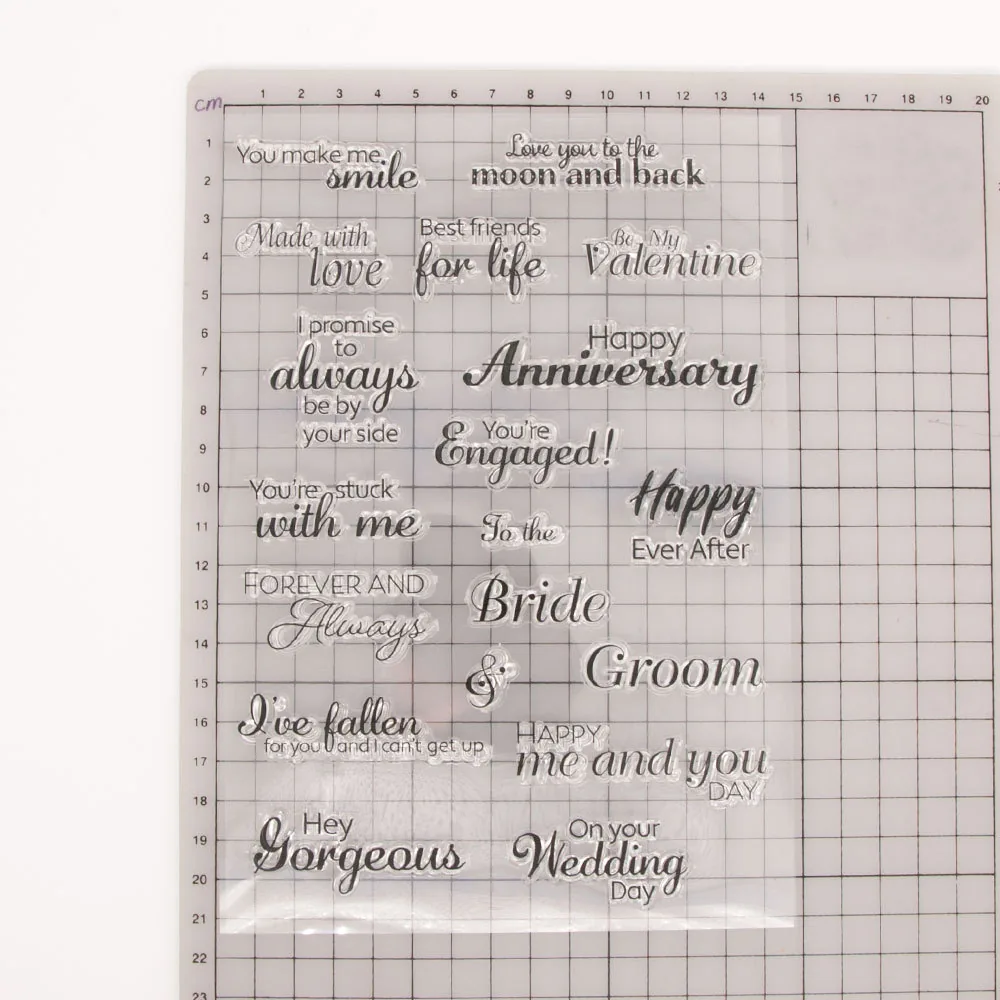 cm
1 2 3 4 5 6 7 8 9 10 11 12 13 14 15 16 17 18 19 20
1
2
3
4
5
6
7
8
9
10
11
12
13
14
15
16
17
18
19
20
21
22
23
You make me
smile
Love you to the
moon and back
Made with
love
Best friends
for life
Be My
Valentine
I promise
to
always
be by
your side
Happy
Anniversary
You're
Engaged!
You're stuck
with me
To the
Happy
Ever After
FOREVER AND
Always
Bride
&
Groom
I've fallen
for you and I can't get up
HAPPY
me and you
DAY
Hey
Gorgeous
On your
Wedding
Day